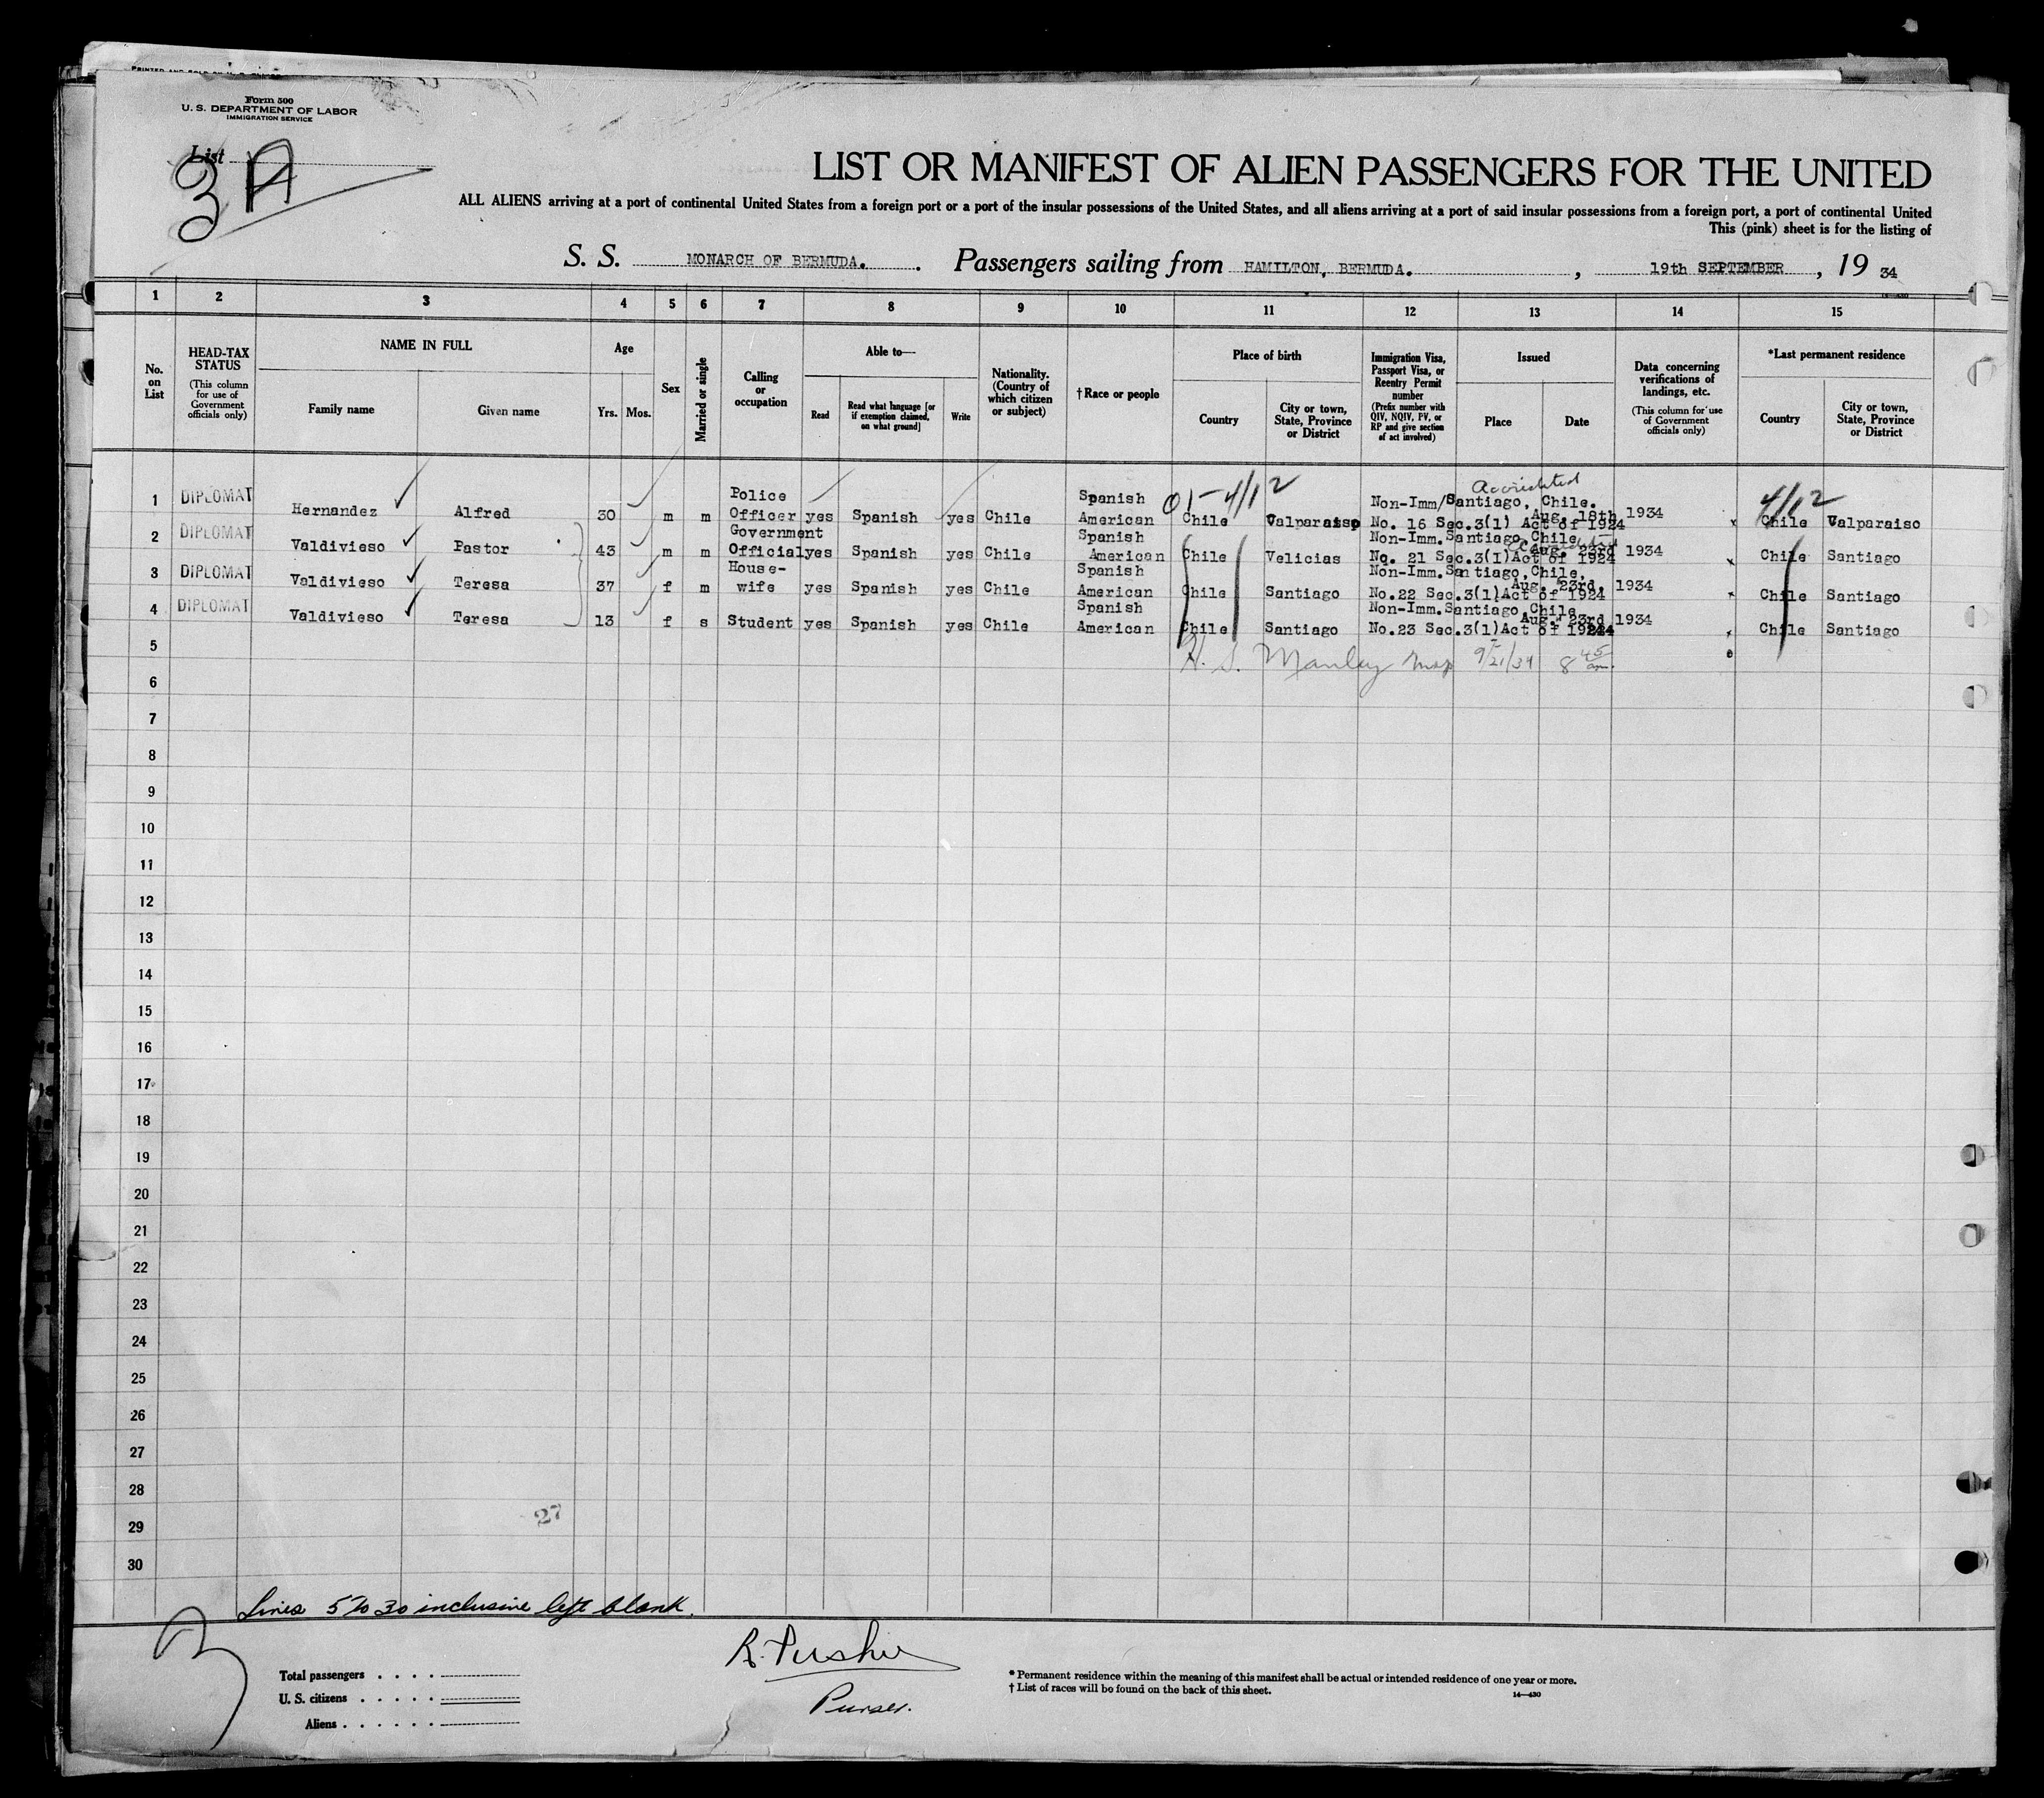 Form 500
U. S. DEPARTMENT OF LABOR
IMMIGRATION SERVICE
List 3 A
LIST OR MANIFEST OF ALIEN PASSENGERS FOR THE UNITED
ALL ALIENS arriving at a port of continental United States from a foreign port or a port of the insular possessions of the United States, and all aliens arriving at a port of said insular possessions from a foreign port, a port of continental United
This (pink) sheet is for the listing of
S. S. MONARCH OF BERMUDA. Passengers sailing from HAMILTON, BERMUDA. , 19th SEPTEMBER , 19 34
1 2 3 4 5 6 7 8 9 10 11 12 13 14 15
No. on List
HEAD-TAX STATUS
(This column for use of Government officials only)
NAME IN FULL
Family name Given name
Age
Yrs. Mos.
Sex
Married or single
Calling or occupation
Able to—
Read
Read what language [or if exemption claimed, on what ground]
Write
Nationality. (Country of which citizen or subject)
† Race or people
Place of birth
Country
City or town, State, Province or District
Immigration Visa, Passport Visa, or Reentry Permit number
(Prefix number with QIV, NQIV, PV, or RP and give section of act involved)
Issued
Place Date
Data concerning verifications of landings, etc.
(This column for use of Government officials only)
*Last permanent residence
Country
City or town, State, Province or District
Accredited
01-4/12 4/12
1 DIPLOMAT Hernandez Alfred 30 m m Police Officer yes Spanish yes Chile Spanish American Chile Valparaiso Non-Imm/Santiago, Chile. No. 16 Sec.3(1) Act of 1924 Aug. 18th 1934 Chile Valparaiso
2 DIPLOMAT Valdivieso Pastor 43 m m Government Official yes Spanish yes Chile Spanish American Chile Velicias Non-Imm. Santiago, Chile No. 21 Sec.3(I) Act of 1924 Aug. 23rd 1934 Chile Santiago
3 DIPLOMAT Valdivieso Teresa 37 f m House-wife yes Spanish yes Chile Spanish American Chile Santiago Non-Imm. Santiago, Chile, No.22 Sec.3(1)Act of 1924 Aug. 23rd, 1934 Chile Santiago
4 DIPLOMAT Valdivieso Teresa 13 f s Student yes Spanish yes Chile Spanish American Chile Santiago Non-Imm. Santiago, Chile No.23 Sec.3(1)Act of 1924 Aug. 23rd 1934 Chile Santiago
5 H. S. Manley 9/21/34 8 45 am.
6
7
8
9
10
11
12
13
14
15
16
17
18
19
20
21
22
23
24
25
26
27
28
27
29
30
Lines 5 to 30 inclusive left blank.
Total passengers
U. S. citizens
Aliens
Purser.
* Permanent residence within the meaning of this manifest shall be actual or intended residence of one year or more.
† List of races will be found on the back of this sheet.
14—430